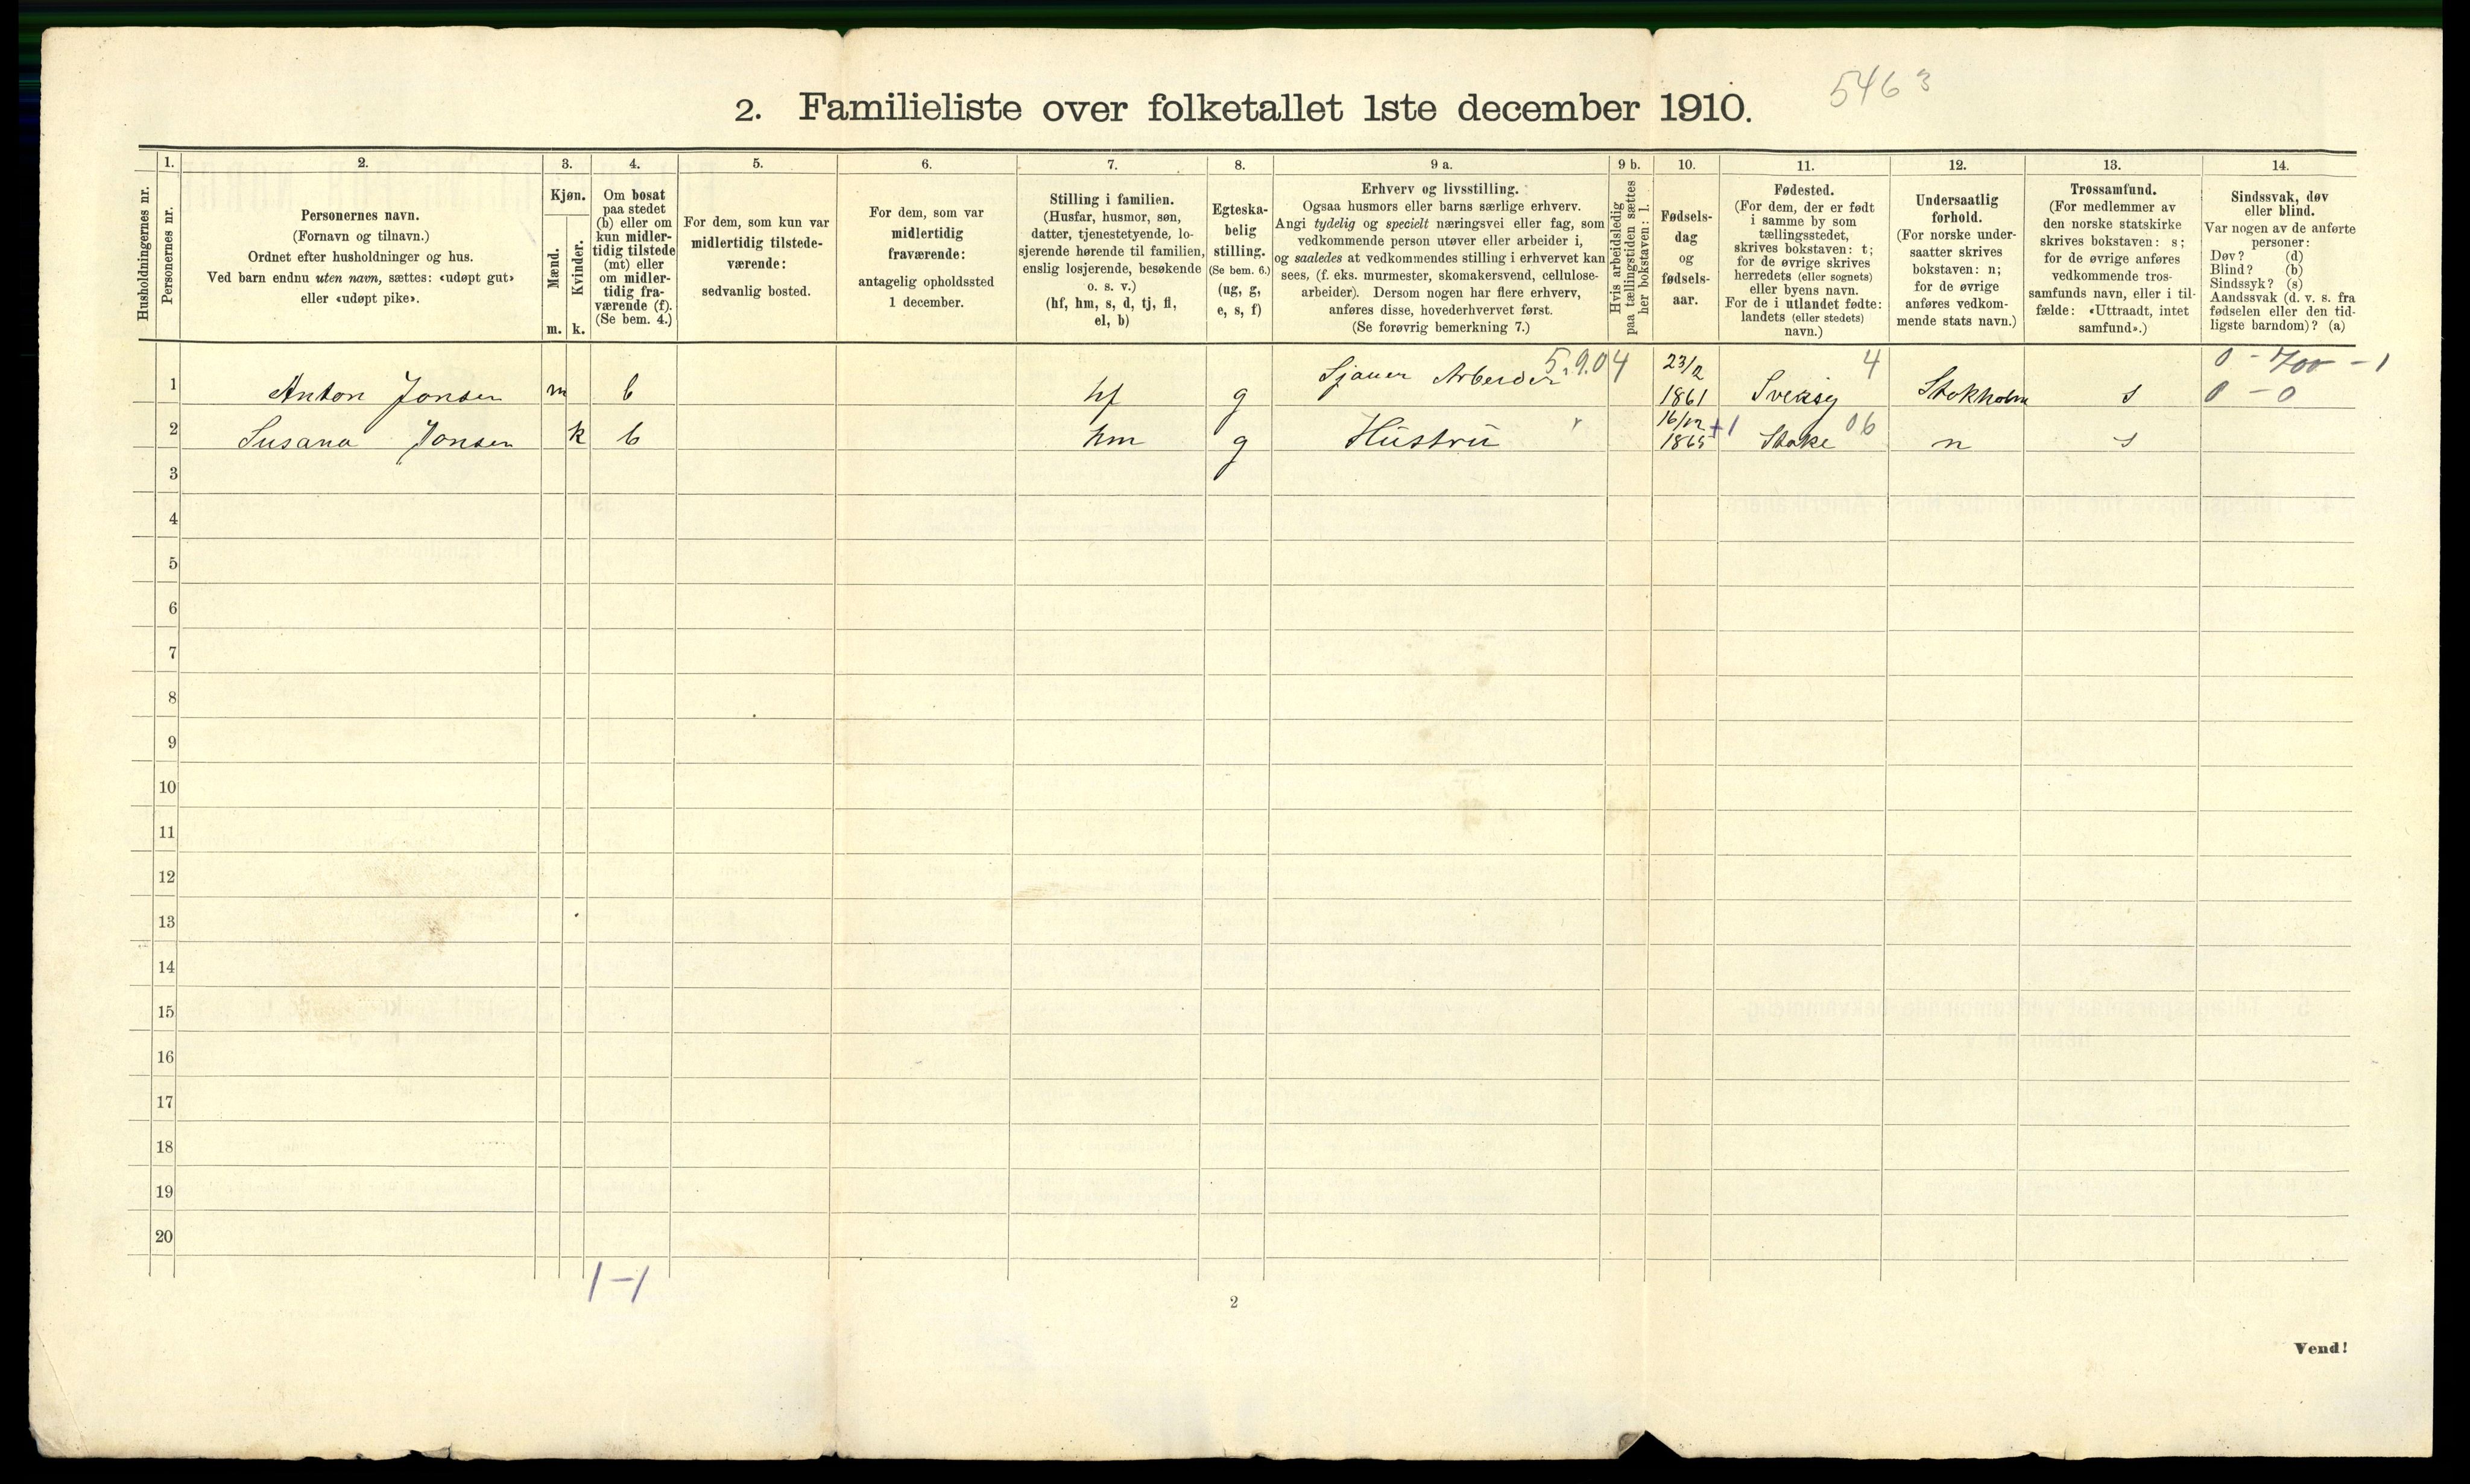 5463
2. Familieliste over folketallet 1ste december 1910.
Husholdningernes nr.
1.
Personernes nr.
2.
Personernes navn.
(Fornavn og tilnavn.)
Ordnet efter husholdninger og hus.
Ved barn endnu uten navn, sættes: «udøpt gut»
eller «udøpt pike».
3.
Kjøn.
Mænd.
m.
Kvinder.
k.
4.
Om bosat
paa stedet
(b) eller om
kun midler-
tidig tilstede
(mt) eller
om midler-
tidig fra-
værende (f).
(Se bem. 4.)
5.
For dem, som kun var
midlertidig tilstede-
værende:
sedvanlig bosted.
6.
For dem, som var
midlertidig
fraværende:
antagelig opholdssted
1 december.
7.
Stilling i familien.
(Husfar, husmor, søn,
datter, tjenestetyende, lo-
sjerende hørende til familien,
enslig losjerende, besøkende
o. s. v.)
(hf, hm, s, d, tj, fl,
el, b)
8.
Egteska-
belig
stilling.
(Se bem. 6.)
(ug, g,
e, s, f)
9 a.
Erhverv og livsstilling.
Ogsaa husmors eller barns særlige erhverv.
Angi tydelig og specielt næringsvei eller fag, som
vedkommende person utøver eller arbeider i,
og saaledes at vedkommendes stilling i erhvervet kan
sees, (f. eks. murmester, skomakersvend, cellulose-
arbeider). Dersom nogen har flere erhverv,
anføres disse, hovederhvervet først.
(Se forøvrig bemerkning 7.)
9 b.
Hvis arbeidsledig
paa tællingstiden sættes
her bokstaven: l.
10.
Fødsels-
dag
og
fødsels-
aar.
11.
Fødested.
(For dem, der er født
i samme by som
tællingsstedet,
skrives bokstaven: t;
for de øvrige skrives
herredets (eller sognets)
eller byens navn.
For de i utlandet fødte:
landets (eller stedets)
navn.)
12.
Undersaatlig
forhold.
(For norske under-
saatter skrives
bokstaven: n;
for de øvrige
anføres vedkom-
mende stats navn.)
13.
Trossamfund.
(For medlemmer av
den norske statskirke
skrives bokstaven: s;
for de øvrige anføres
vedkommende tros-
samfunds navn, eller i til-
fælde: «Uttraadt, intet
samfund».)
14.
Sindssvak, døv
eller blind.
Var nogen av de anførte
personer:
Døv? (d)
Blind? (b)
Sindssyk? (s)
Aandssvak (d. v. s. fra
fødselen eller den tid-
ligste barndom)? (a)
1 Anton Jonsen m b hf g Sjauer Arbeider 5.9.04 23/2 1861 Sverig 4 Stokholm s 0 - 700 - 1
0 - 0
2 Susana Jonsen k b hm g Hustru 16/12 1865 +1 Stoke 06 n s
3
4
5
6
7
8
9
10
11
12
13
14
15
16
17
18
19
20
1-1
2
Vend!